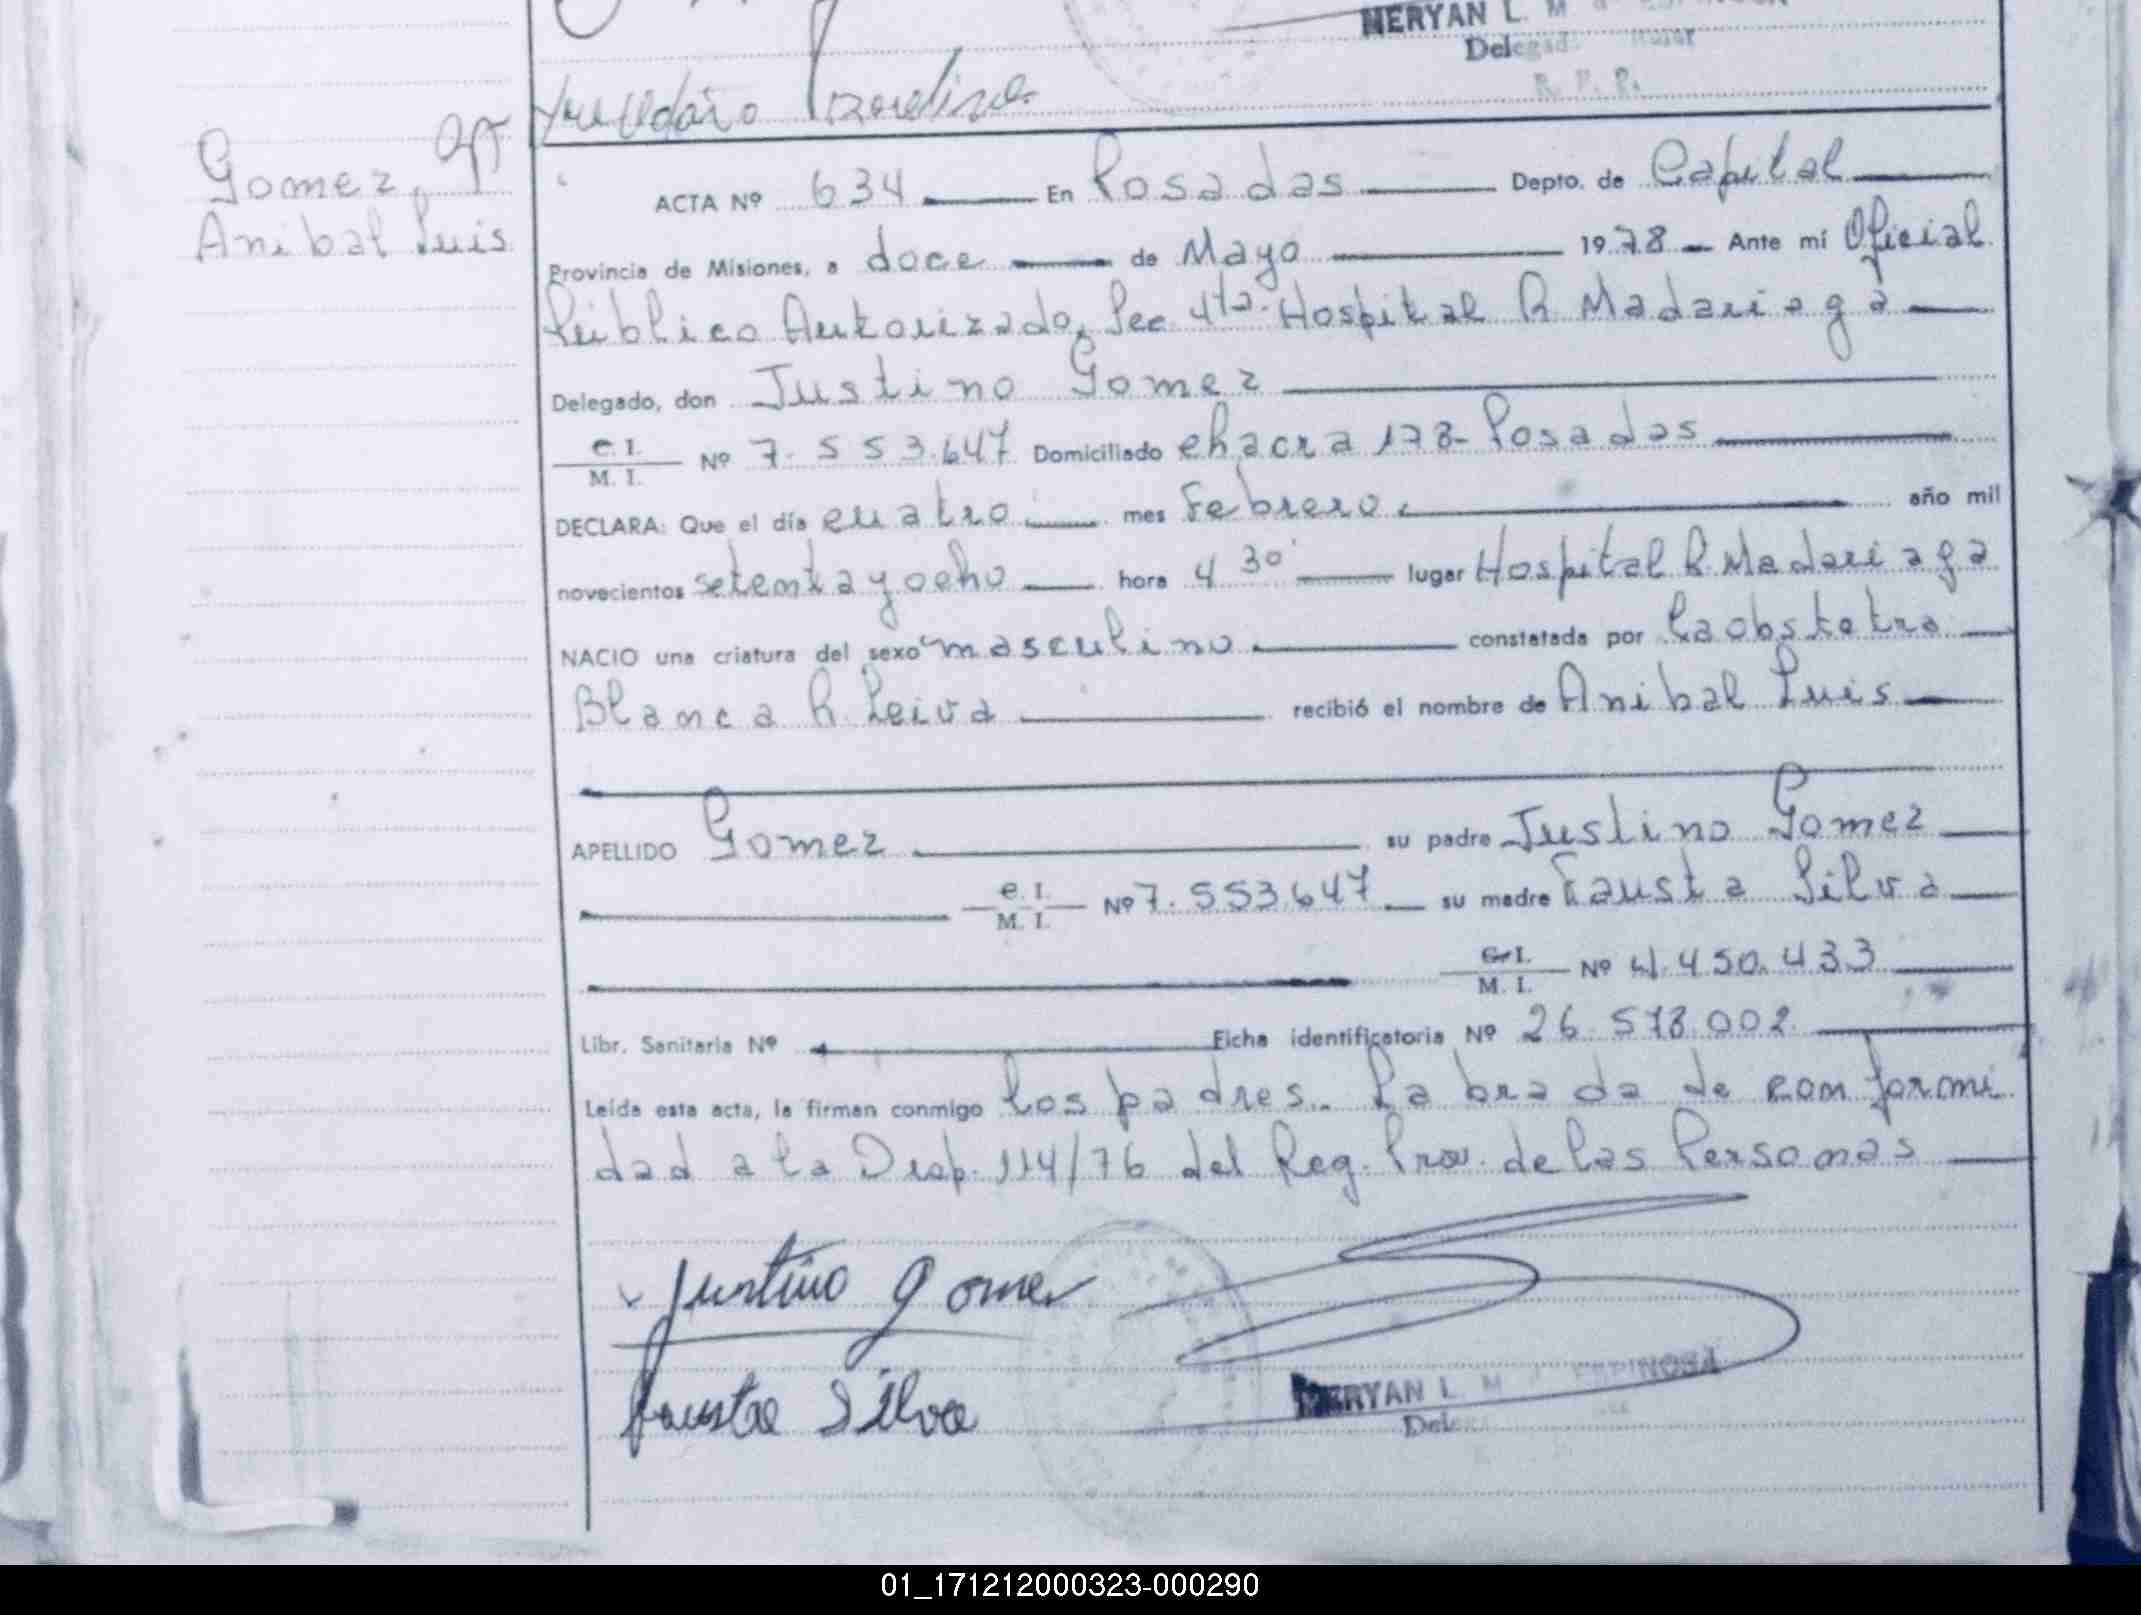 MERYAN L. M
Delegad
R. P. R.
Gomez,
Anibal Luis
ACTA Nº 634 En Posadas Depto. de Capital
Provincia de Misiones, a doce de Mayo 1978 Ante mí Oficial
Público Autorizado, Sec 4ta. Hospital R Madariaga
Delegado, don Justino Gomez
C. I.
M. I. Nº 7.553.647 Domiciliado chacra 178- Posadas
DECLARA: Que el día cuatro mes Febrero año mil
novecientos setenta y ocho hora 4 30' lugar Hospital R Madariaga
NACIO una criatura del sexo masculino constatada por la obstetra
Blanca R. Leiva recibió el nombre de Anibal Luis
APELLIDO Gomez su padre Justino Gomez
C. I.
M. I. Nº 7.553.647 su madre Fausta Silva
C. I.
M. I. Nº 4.450.433
Libr. Sanitaria Nº Ficha identificatoria Nº 26.578.002
Leída esta acta, la firman conmigo los padres. Labrada de conformi
dad a la Disp. 114/76 del Reg. Prov. de las Personas
Justino Gomez
Fausta Silva
MERYAN L. M ESPINOSA
01_171212000323-000290